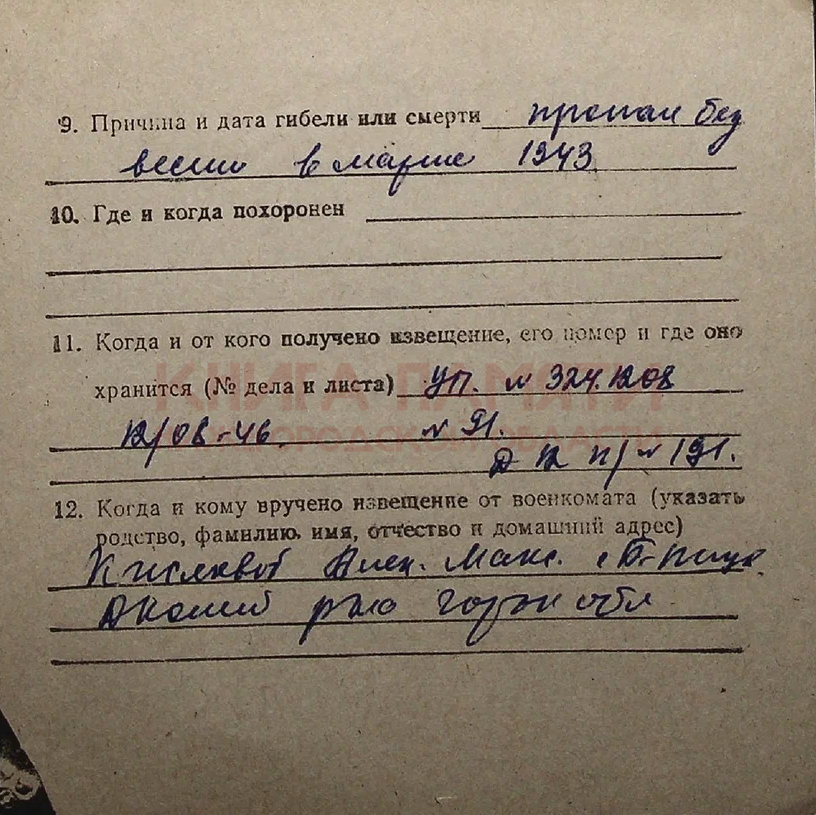 9. Причина и дата гибели или смерти пропал без
вести в марте 1943
10. Где и когда похоронен
11. Когда и от кого получено извещение, его номер и где оно
хранится (№ дела и листа) УП. № 324.1208
12/08-46. № 91.
Д 12 п/№ 191.
12. Когда и кому вручено извещение от военкомата (указать
родство, фамилию, имя, отчество и домашний адрес)
Макс.
р-на
КНИГА ПАМЯТИ
НИЖЕГОРОДСКОЙ ОБЛАСТИ